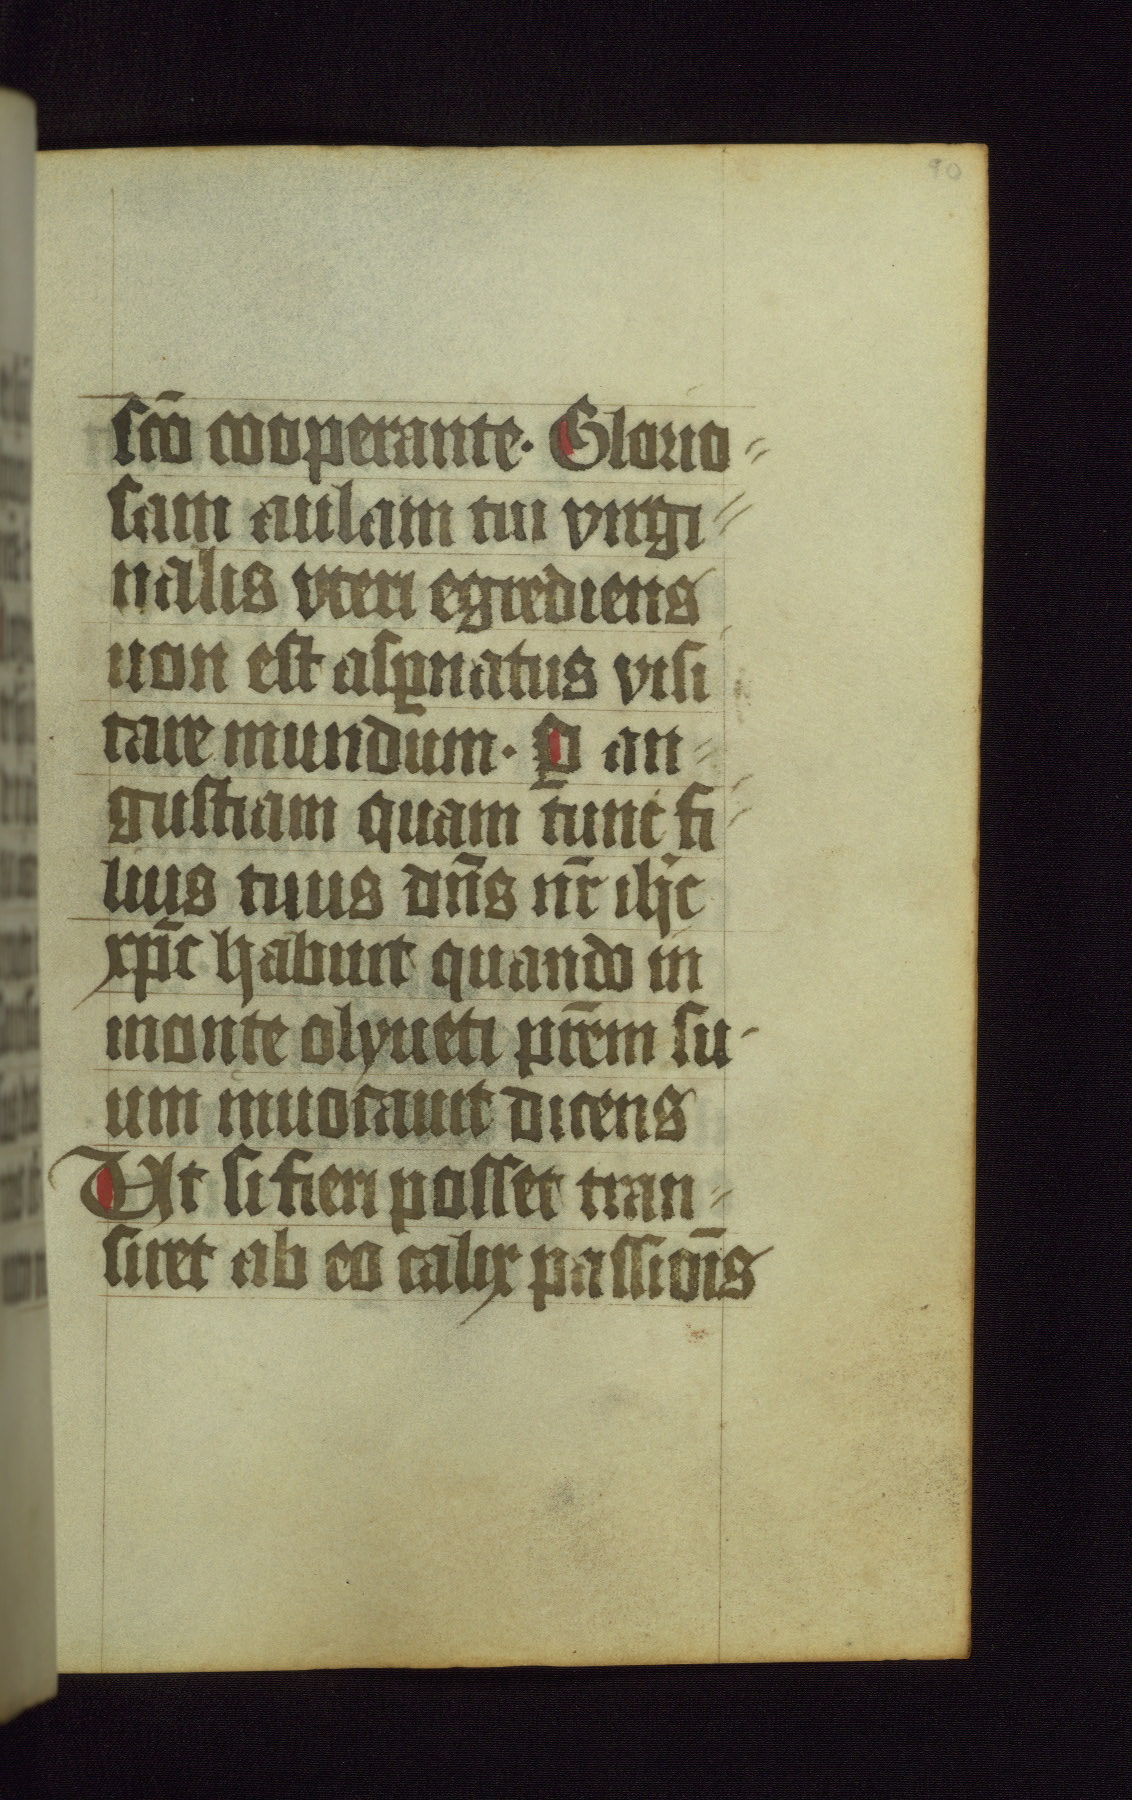 90
sc̄o cooperante. Glorio
sam aulam tui virgi
nalis vteri egrediens
non est aspꝑnatus visi
tare mundum. Ꝑ an
gustiam quam tunc fi
lius tuus dn̄s nr̄ ihc̄
xp̄c habuit quando in
monte olyueti pr̄em su
um inuocauit dicens
Ut si fieri posset tran
siret ab eo calix passiōīs